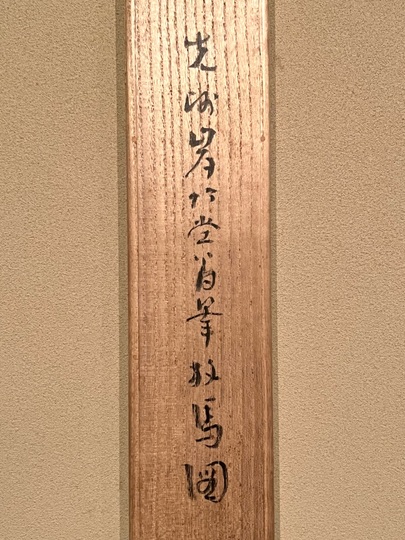 先師岸竹堂翁筆牧馬図